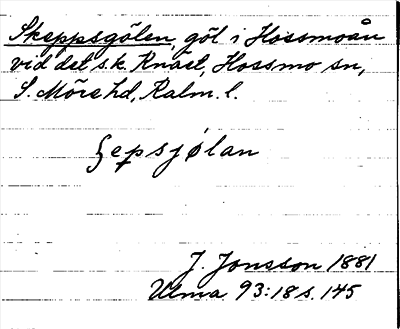 Skeppsgölen, göl i Hossmoån
vid det s.k. Knäet, Hossmo sn,
S. Möre hd, Kalm. l.
ʃepsjølan
J. Jonsson 1881
Ulma 93:18 s. 145